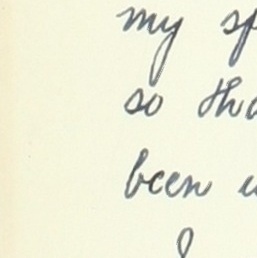 my sp
so tha
been